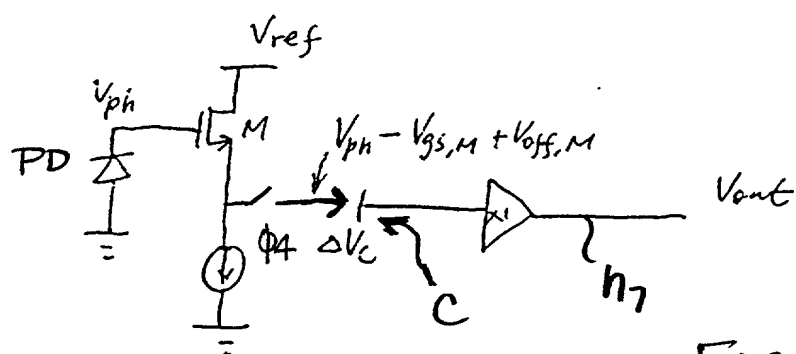 Vref
Vph
M
PD
Vph - Vgs,M + Voff,M
ϕ4
ΔVc
C
x1
Vout
n7